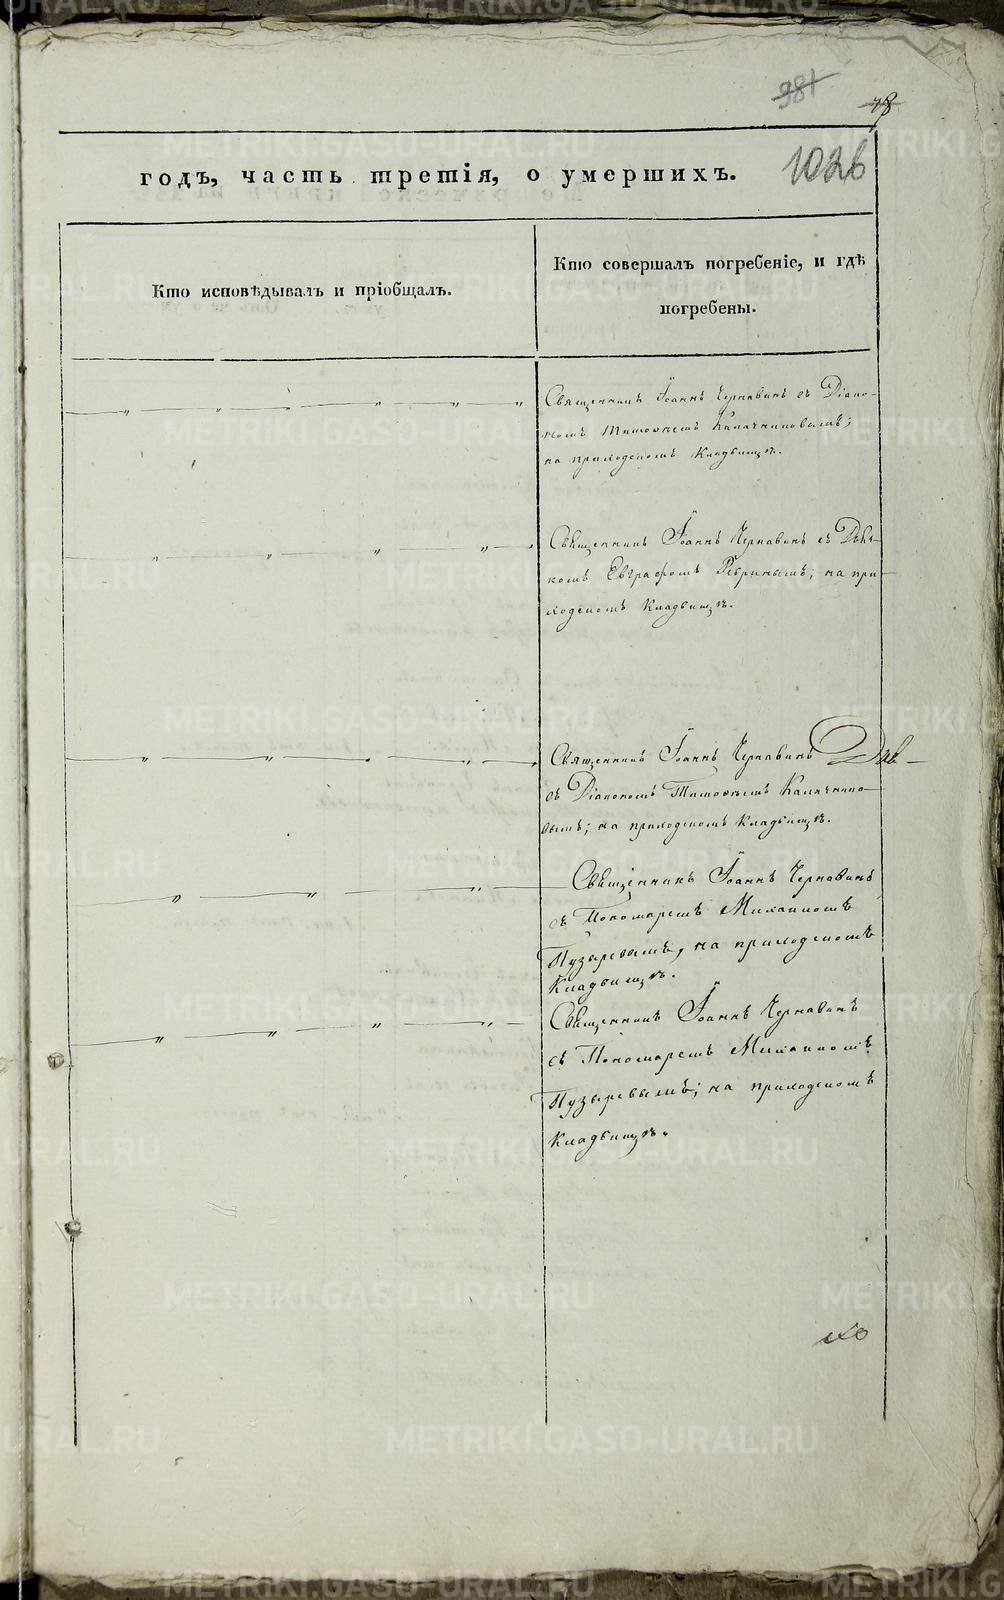 981
78
годъ, часть третія, о умершихъ.
1026
Кто исповѣдывалъ и пріобщалъ.
Кто совершалъ погребеніе, и гдѣ
погребены.
Священникъ Іоаннъ Чернавинъ съ Діако-
номъ Тимоѳеемъ Калачниковымъ;
на приходскомъ Кладбищѣ.
Священникъ Іоаннъ Чернавинъ съ Дьяч-
комъ Евграфомъ Ребринымъ; на при-
ходскомъ Кладбищѣ.
Священникъ Іоаннъ Чернавинъ
съ Діакономъ Тимоѳеемъ Калачнико-
вымъ; на приходскомъ Кладбищѣ.
Священникъ Іоаннъ Чернавинъ
съ Пономаремъ Михаиломъ
Пузыревымъ, на приходскомъ
Кладбищѣ.
Священникъ Іоаннъ Чернавинъ
съ Пономаремъ Михаиломъ
Пузыревымъ; на приходскомъ
Кладбищѣ.
METRIKI.GASO-URAL.RU